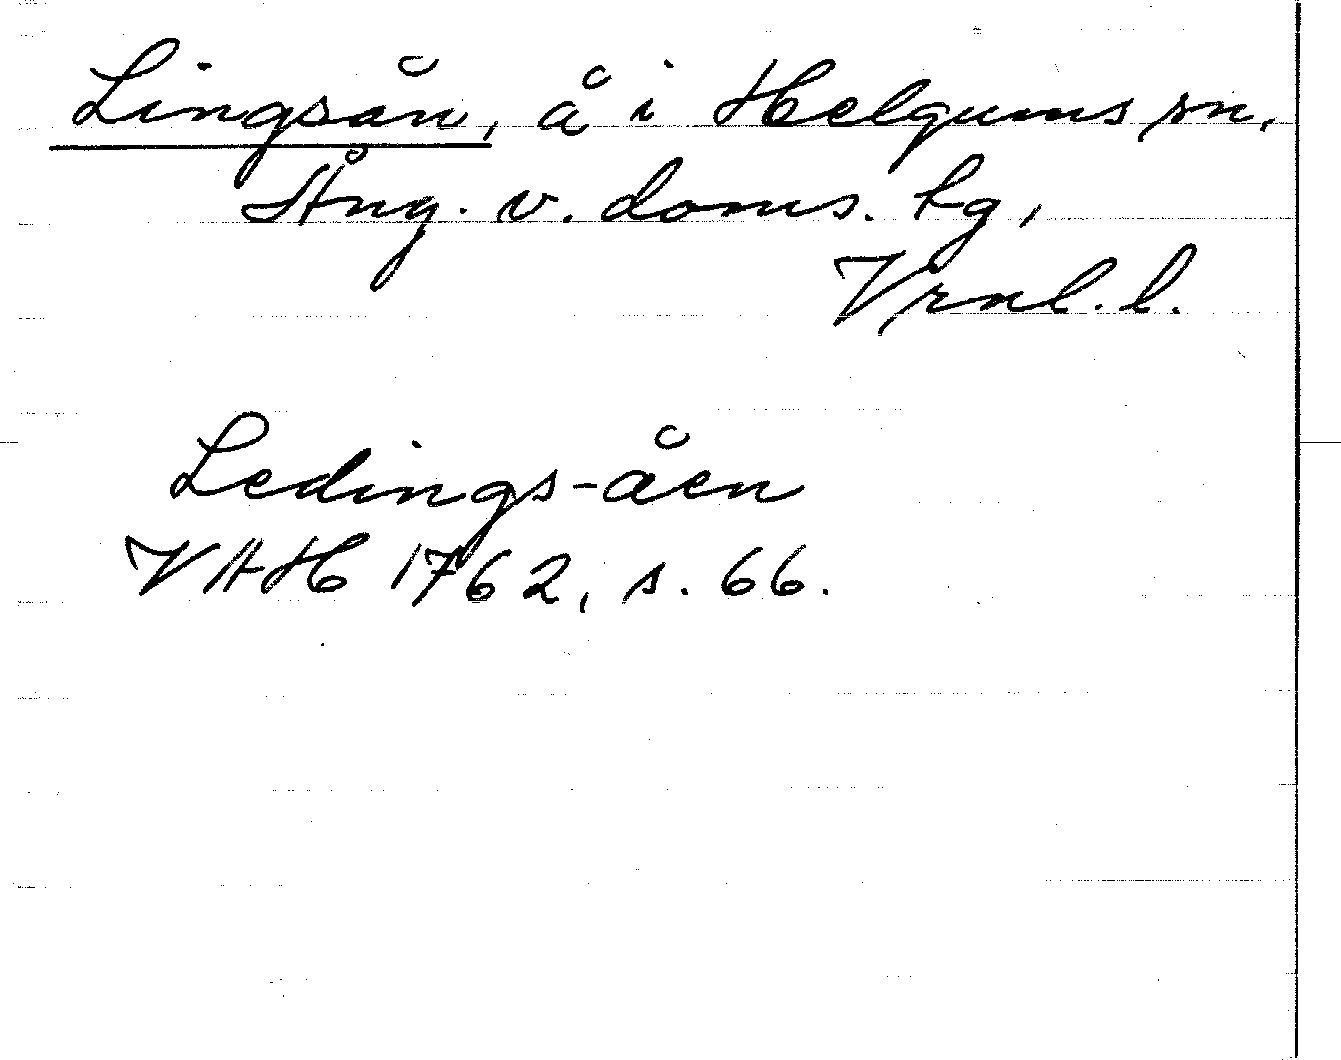 Lingsån, å i Helgums sn,
Ång. v. doms. tg,
Vrnl. l.
Ledings-åen
VAH 1762, s. 66.